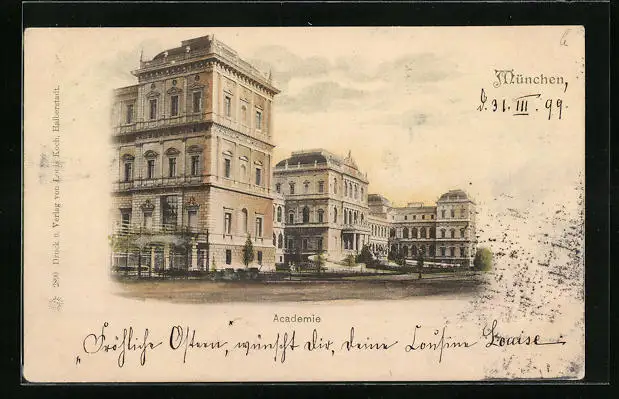 München,
d. 31. III. 99.
289 Druck u. Verlag von Louis Koch, Halberstadt.
Academie
„Fröhliche Ostern", wünscht Dir, Deine Cousine Louise